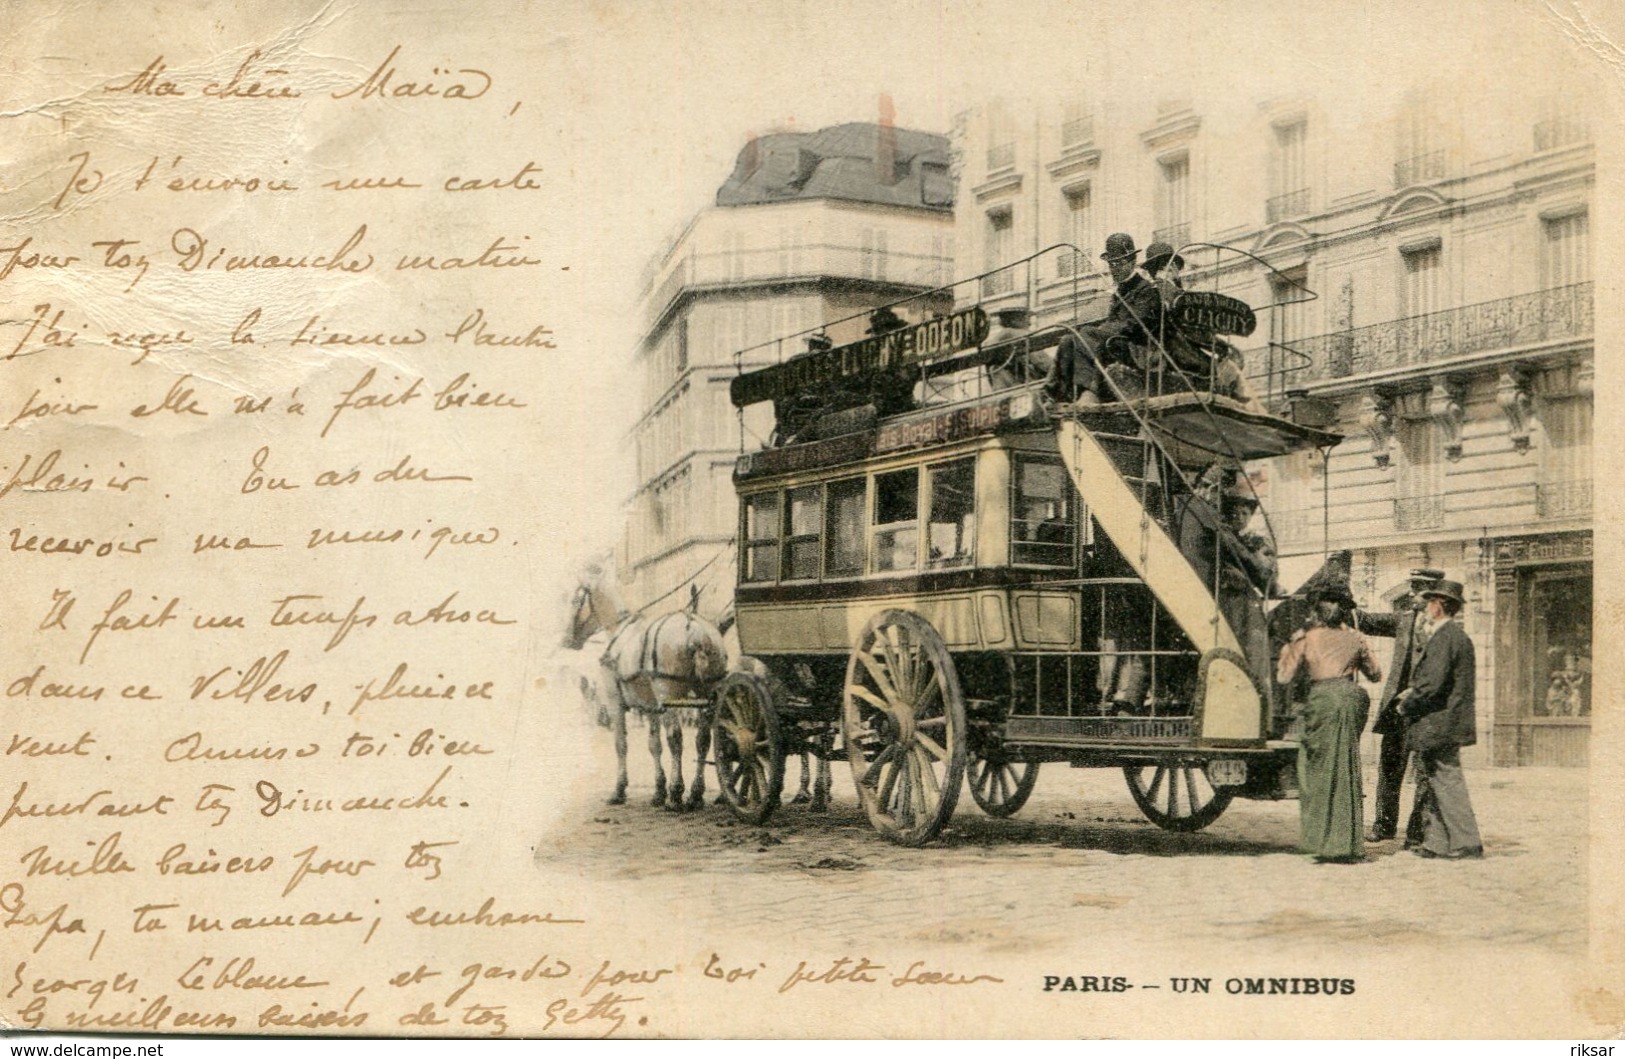 Ma chère Maïa,
Je t'envoie une carte
pour toy Dimanche matin.
J'ai reçu la tienne l'autre
jour elle m'a fait bien
plaisir. Tu as du
recevoir ma musique.
Il fait un temps atroce
dans ce Villers, pluie et
vent. Amuse toi bien
pendant ty Dimanche.
Mille baisers pour toy
Papa, ta maman; embrasse
Georges Leblanc, et garde pour toi petite sœur
ls meilleurs baisers de toy Getty.
CLICHY = ODÉON
CLICHY
Royal - St Sulpice
Emile
PARIS- – UN OMNIBUS
https://www.delcampe.net
riksar